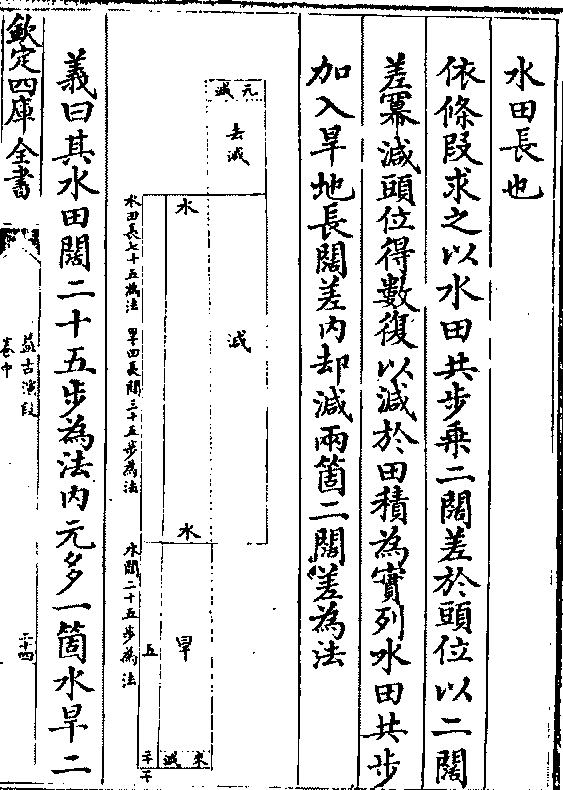 水田長也
依條段求之以水田共步乗二闊差於頭位以二闊
差冪減頭位得數復以減於田積為實列水田共步
加入旱地長闊差内却減兩箇二闊差為法
元減
去減
水
減
水
旱
五
來減
水田長七十五為法
旱田長闊三十五步為法
水闊二十五步為法
義曰其水田闊二十五步為法内元多一箇水旱二
欽定四庫全書
益古演段
卷中
二十四